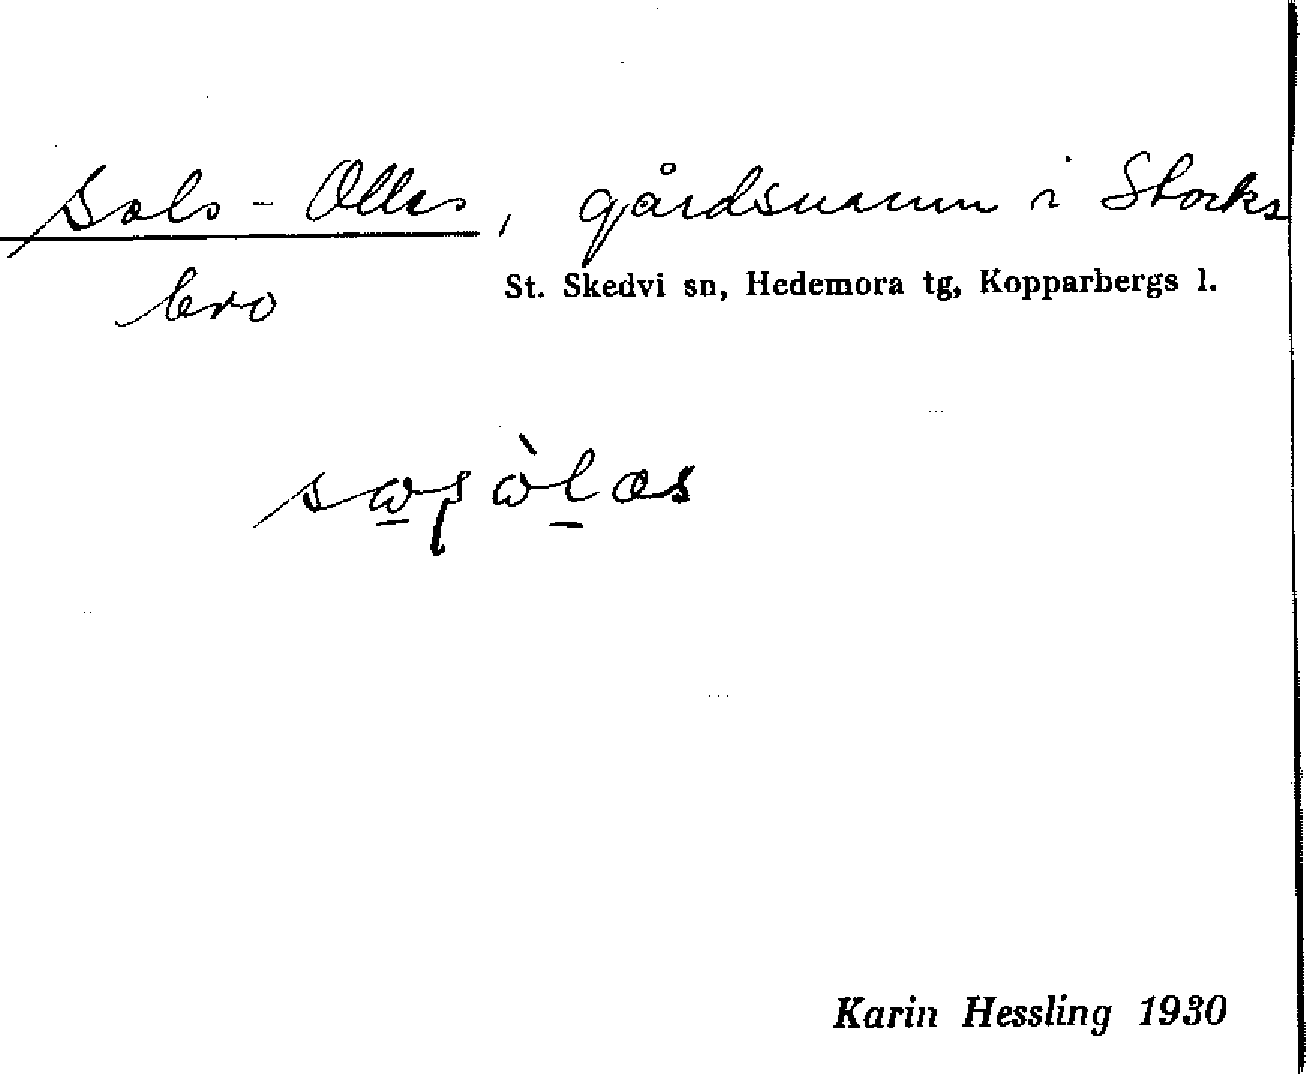 Sols-Olles, gårdsnamn i Stocks
bro
St. Skedvi sn, Hedemora tg, Kopparbergs l.
Karin Hessling 1930